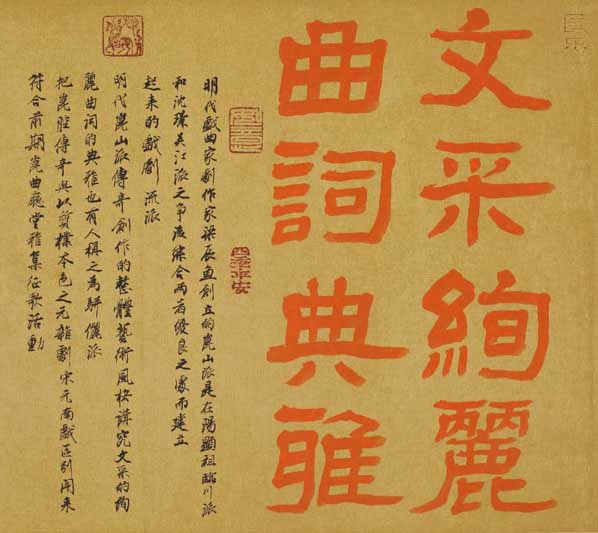 文采絢麗
曲詞典雅
四季平安
明代戲曲家劇作家梁辰魚創立的崑山派是在湯顯祖臨川派
和沈璟吴江派之爭後綜合两者優良之處而建立
起来的戲劇流派
明代崑山派傳奇創作的整體藝術風格講究文采的絢
麗曲詞的典雅也有人稱之為駢儷派
把崑腔傳奇與以質樸本色之元雜劇宋元南戲區别開来
符合前期崑曲廳堂雅集征歌活動